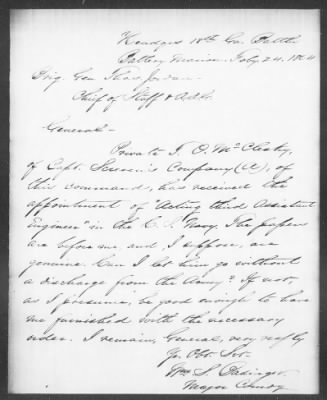 Headqrs 18th Ga. Battln
Battery Marion. Feby. 24. 1864
Brig. Gen Thos Jordan
Chief of Staff & A.A.G.
General-
Private T. O. McCleskey,
of Capt. Screven's Company (A), of
this command, has received the
appointment of "Acting third Assistant
Engineer" in the C. S. Navy. The papers
are before me, and, I suppose, are
genuine. Can I let him go without
a discharge from the Army? If not,
as I presume, be good enough to have
me furnished with the necessary
order. I remain, General, very resply
Yr. Obt. Svt.
Wm. S. Basinger
Major Comdg